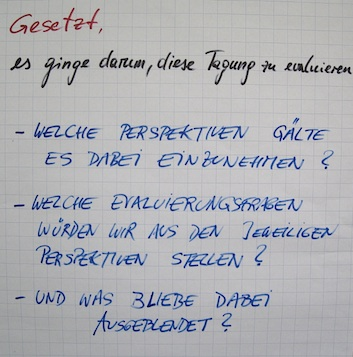 Gesetzt,
es ginge darum, diese Tagung zu evaluieren
- WELCHE PERSPEKTIVEN GÄLTE
ES DABEI EINZUNEHMEN?
- WELCHE EVALUIERUNGSFRAGEN
WÜRDEN WIR AUS DEN JEWEILIGEN
PERSPEKTIVEN STELLEN?
- UND WAS BLIEBE DABEI
AUSGEBLENDET?